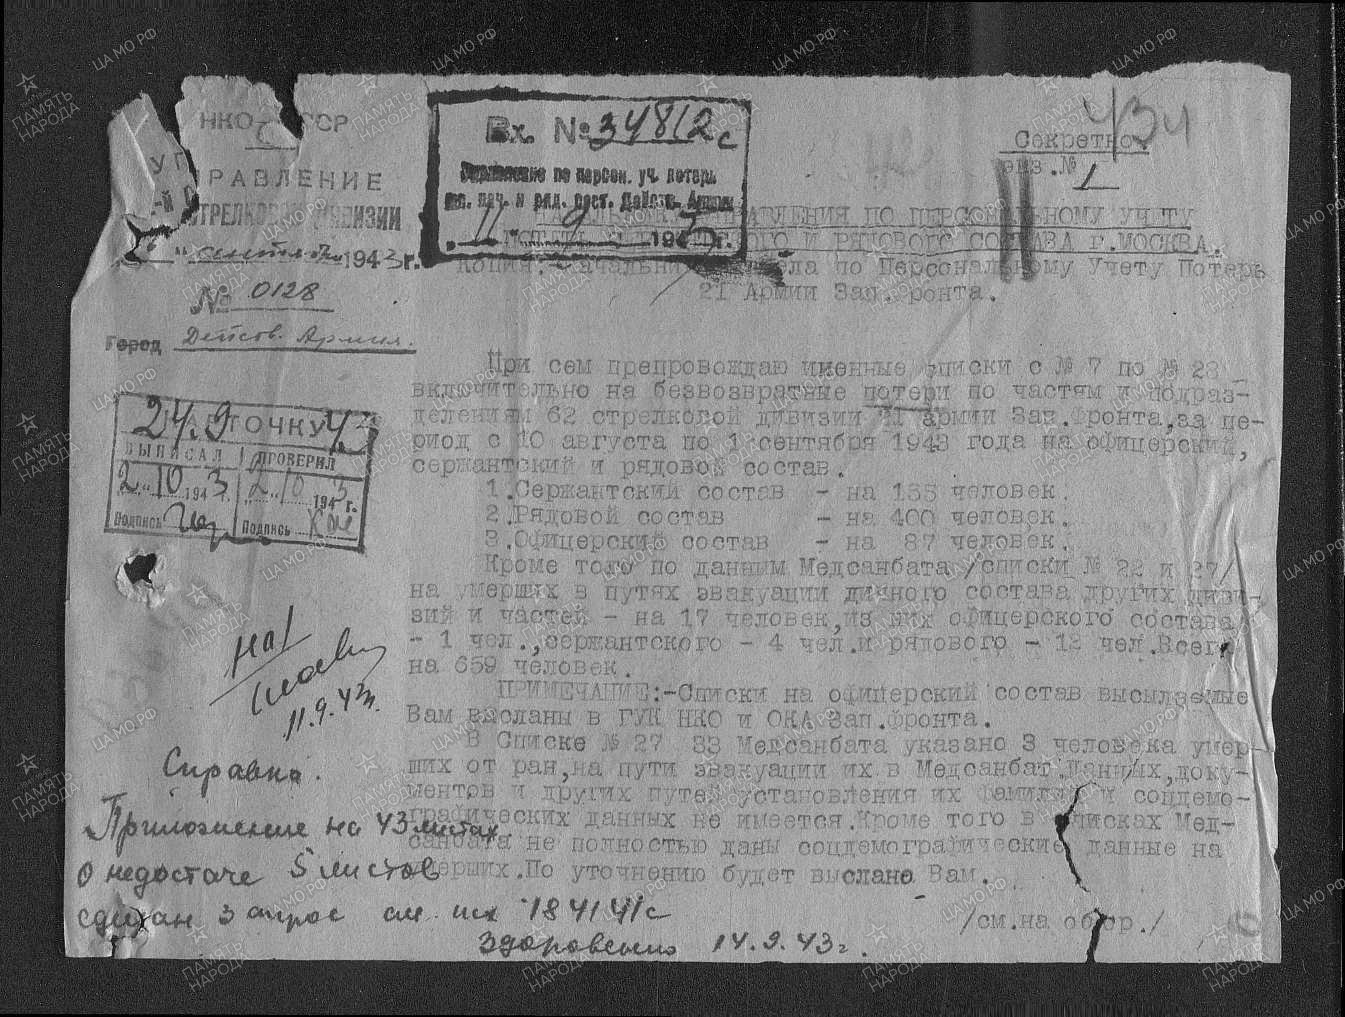 НКО СССР
УПРАВЛЕНИЕ
-й СТРЕЛКОВОЙ ДИВИЗИИ
" сентября 1943 г.
№ 0128
Город Действ. Армия.
Вх. № 34812с
Управление по персон. уч. потерь
мл. нач. и ряд. сост. Действ. Армии
"11" 9 1943 г.
434
Секретно
экз.№ 1
НАЧАЛЬНИКУ УПРАВЛЕНИЯ ПО ПЕРСОНАЛЬНОМУ УЧЕТУ
ПОТЕРЬ И РЯДОВОГО СОСТАВА г.МОСКВА.
Копия: Начальнику отдела по Персональному Учету Потерь
21 Армии Зап.фронта.
При сем препровождаю именные списки с № 7 по № 28
включительно на безвозвратные потери по частям и подраз-
делениям 62 стрелковой дивизии 21 армии Зап.фронта,за пе-
риод с 10 августа по 1 сентября 1943 года на офицерский,
сержантский и рядовой состав.
1.Сержантский состав - на 155 человек.
2.Рядовой состав - на 400 человек.
3.Офицерский состав - на 87 человек.
Кроме того по данным Медсанбата /списки № 22 и 27/
на умерших в путях эвакуации личного состава других диви-
зий и частей - на 17 человек,из них офицерского состава
- 1 чел.,сержантского - 4 чел.и рядового - 12 чел.Всего
на 659 человек.
ПРИМЕЧАНИЕ:-Списки на офицерский состав высылаемые
Вам высланы в ГУК НКО и ОКА Зап.фронта.
В Списке № 27 33 Медсанбата указано 3 человека умер-
ших от ран,на пути эвакуации их в Медсанбат.Данных,доку-
ментов и других путей установления их фамилий и соцдемо-
графических данных не имеется.Кроме того в списках Мед-
санбата не полностью даны соцдемографические данные на
умерших.По уточнению будет выслано Вам.
/см.на обор./
24.9 КАРТОЧКУ 43
ВЫПИСАЛ ПРОВЕРИЛ
2 " 10 1943 г. 2 " 10 1943 г.
Подпись Подпись
11.9.43г.
Справка.
Приложение на 43 листах
о недостаче 5 листов
сделан запрос см. исх 184141с
14.9.43г.
ЦА МО РФ
ПАМЯТЬ
НАРОДА